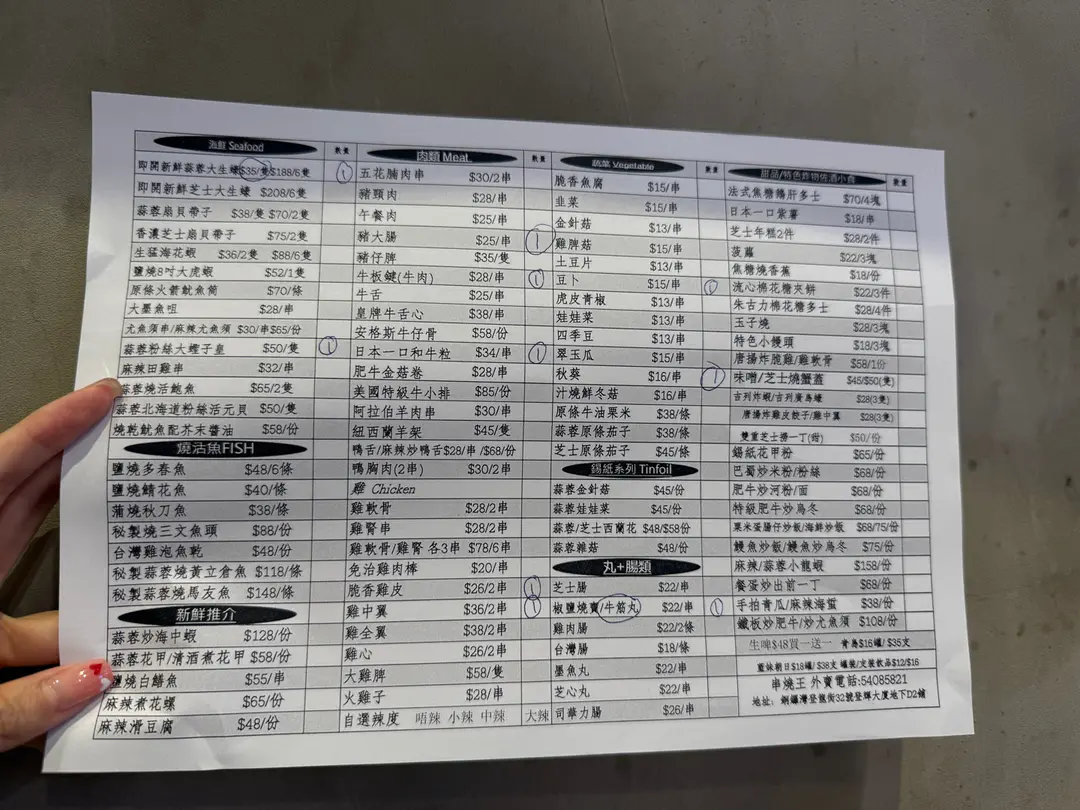 海鮮 Seafood 數量
即開新鮮蒜蓉大生蠔$35/隻$188/6隻 ①
即開新鮮芝士大生蠔 $208/6隻
蒜蓉扇貝帶子 $38/隻 $70/2隻
香濃芝士扇貝帶子 $75/2隻
生猛海花蝦 $36/2隻 $88/6隻
鹽燒8吋大虎蝦 $52/1隻
原條火箭魷魚筒 $70/條
大墨魚咀 $28/串
尤魚須串/麻辣尤魚須 $30/串$65/份
蒜蓉粉絲大蟶子皇 $50/隻 ①
麻辣田雞串 $32/串
蒜蓉燒活鮑魚 $65/2隻
蒜蓉北海道粉絲活元貝 $50/隻
燒乾魷魚配芥末醬油 $58/份
燒活魚FISH
鹽燒多春魚 $48/6條
鹽燒鯖花魚 $40/條
蒲燒秋刀魚 $38/條
秘製燒三文魚頭 $88/份
台灣雞泡魚乾 $48/份
秘製蒜蓉燒黃立倉魚 $118/條
秘製蒜蓉燒馬友魚 $148/條
新鮮推介
蒜蓉炒海中蝦 $128/份
蒜蓉花甲/清酒煮花甲 $58/份
鹽燒白鱔魚 $55/串
麻辣煮花螺 $65/份
麻辣滑豆腐 $48/份
肉類 Meat 數量
五花腩肉串 $30/2串
豬頸肉 $28/串
午餐肉 $25/串
豬大腸 $25/串 ①
豬仔脾 $35/隻
牛板腱(牛肉) $28/串 ①
牛舌 $25/串
皇牌牛舌心 $38/串
安格斯牛仔骨 $58/份
日本一口和牛粒 $34/串 ①
肥牛金菇卷 $28/串
美國特級牛小排 $85/份
阿拉伯羊肉串 $30/串
紐西蘭羊架 $45/隻
鴨舌/麻辣炒鴨舌$28/串 /$68/份
鴨胸肉(2串) $30/2串
雞 Chicken
雞軟骨 $28/2串
雞腎串 $28/2串
雞軟骨/雞腎 各3串 $78/6串
免治雞肉棒 $20/串
脆香雞皮 $26/2串 ①
雞中翼 $36/2串 ①
雞全翼 $38/2串
雞心 $26/2串
大雞脾 $58/隻
火雞子 $28/串
自選辣度 唔辣 小辣 中辣 大辣
蔬菜 Vegetable 數量
脆香魚腐 $15/串
韭菜 $15/串
金針菇 $13/串
雞脾菇 $15/串
土豆片 $13/串
豆卜 $15/串 ①
虎皮青椒 $13/串
娃娃菜 $13/串
四季豆 $13/串
翠玉瓜 $15/串
秋葵 $16/串 ①
汁燒鮮冬菇 $16/串
原條牛油栗米 $38/條
蒜蓉原條茄子 $38/條
芝士原條茄子 $45/條
錫紙系列 Tinfoil
蒜蓉金針菇 $45/份
蒜蓉娃娃菜 $45/份
蒜蓉/芝士西蘭花 $48/$58份
蒜蓉雜菇 $48/份
丸+腸類
芝士腸 $22/串
椒鹽燒賣/牛筋丸 $22/串 ①
雞肉腸 $22/2條
台灣腸 $18/條
墨魚丸 $22/串
芝心丸 $22/串
司華力腸 $26/串
甜品/特色炸物佐酒小食 數量
法式焦糖鵝肝多士 $70/4塊
日本一口紫薯 $18/串
芝士年糕2件 $28/2件
菠蘿 $22/3塊
焦糖燒香蕉 $18/份
流心棉花糖夾餅 $22/3件
朱古力棉花糖多士 $28/4件
玉子燒 $28/3塊
特色小饅頭 $18/3塊
唐揚炸脆雞/雞軟骨 $58/1份
味噌/芝士燒蟹蓋 $45/$50(隻)
吉列炸蝦/吉列廣島蠔 $28(3隻)
唐揚炸雞皮餃子/雞中翼 $28(3隻)
雙重芝士撈一丁(甜) $50/份
錫紙花甲粉 $65/份
巴蜀炒米粉/粉絲 $68/份
肥牛炒河粉/面 $68/份
特級肥牛炒烏冬 $68/份
粟米蛋腸仔炒飯/海鮮炒飯 $68/75/份
鰻魚炒飯/鰻魚炒烏冬 $75/份
麻辣/蒜蓉小龍蝦 $158/份
餐蛋炒出前一丁 $68/份
手拍青瓜/麻辣海蜇 $38/份
鐵板炒肥牛/炒尤魚須 $108/份
生啤$48買一送一 青島$16罐/ $35支
藍妹朝日$18罐/ $38支 罐裝/支裝飲品$12/$16
串燒王 外賣電話:54085821
地址: 銅鑼灣登龍街32號登輝大廈地下D2舖